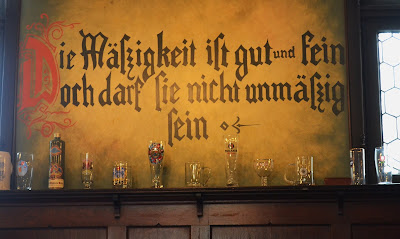 Die Mäßigkeit ist gut und fein
Doch darf sie nicht unmäßig
sein